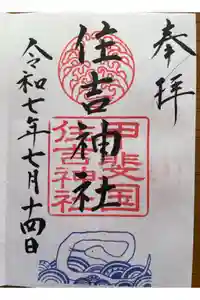 奉拝
住吉神社
甲斐国
住吉神社
令和七年七月十四日